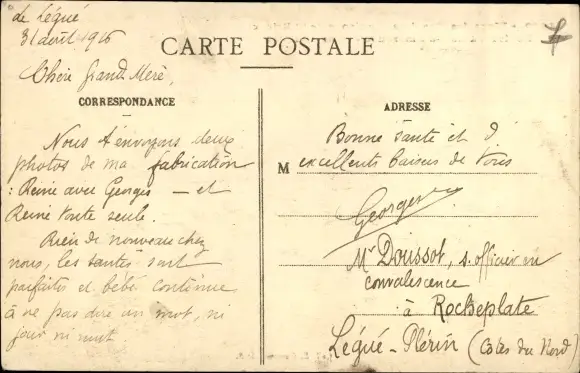 Le Légué
31 août 1916
CARTE POSTALE
Chère Grand Mère,
CORRESPONDANCE
Nous t'envoyons deux
photos de ma fabrication
: Reine avec Georges — et
Reine toute seule.
Rien de nouveau chez
nous, les santés sont
parfaites et bébé continue
à ne pas dire un mot, ni
jour ni nuit.
ADRESSE
Bonne santé et d'
M excellents baisers de tous
Georges
Mr Doussot, s. officier en
convalescence
à Rocheplate
Légué - Plérin (Côtes du Nord)